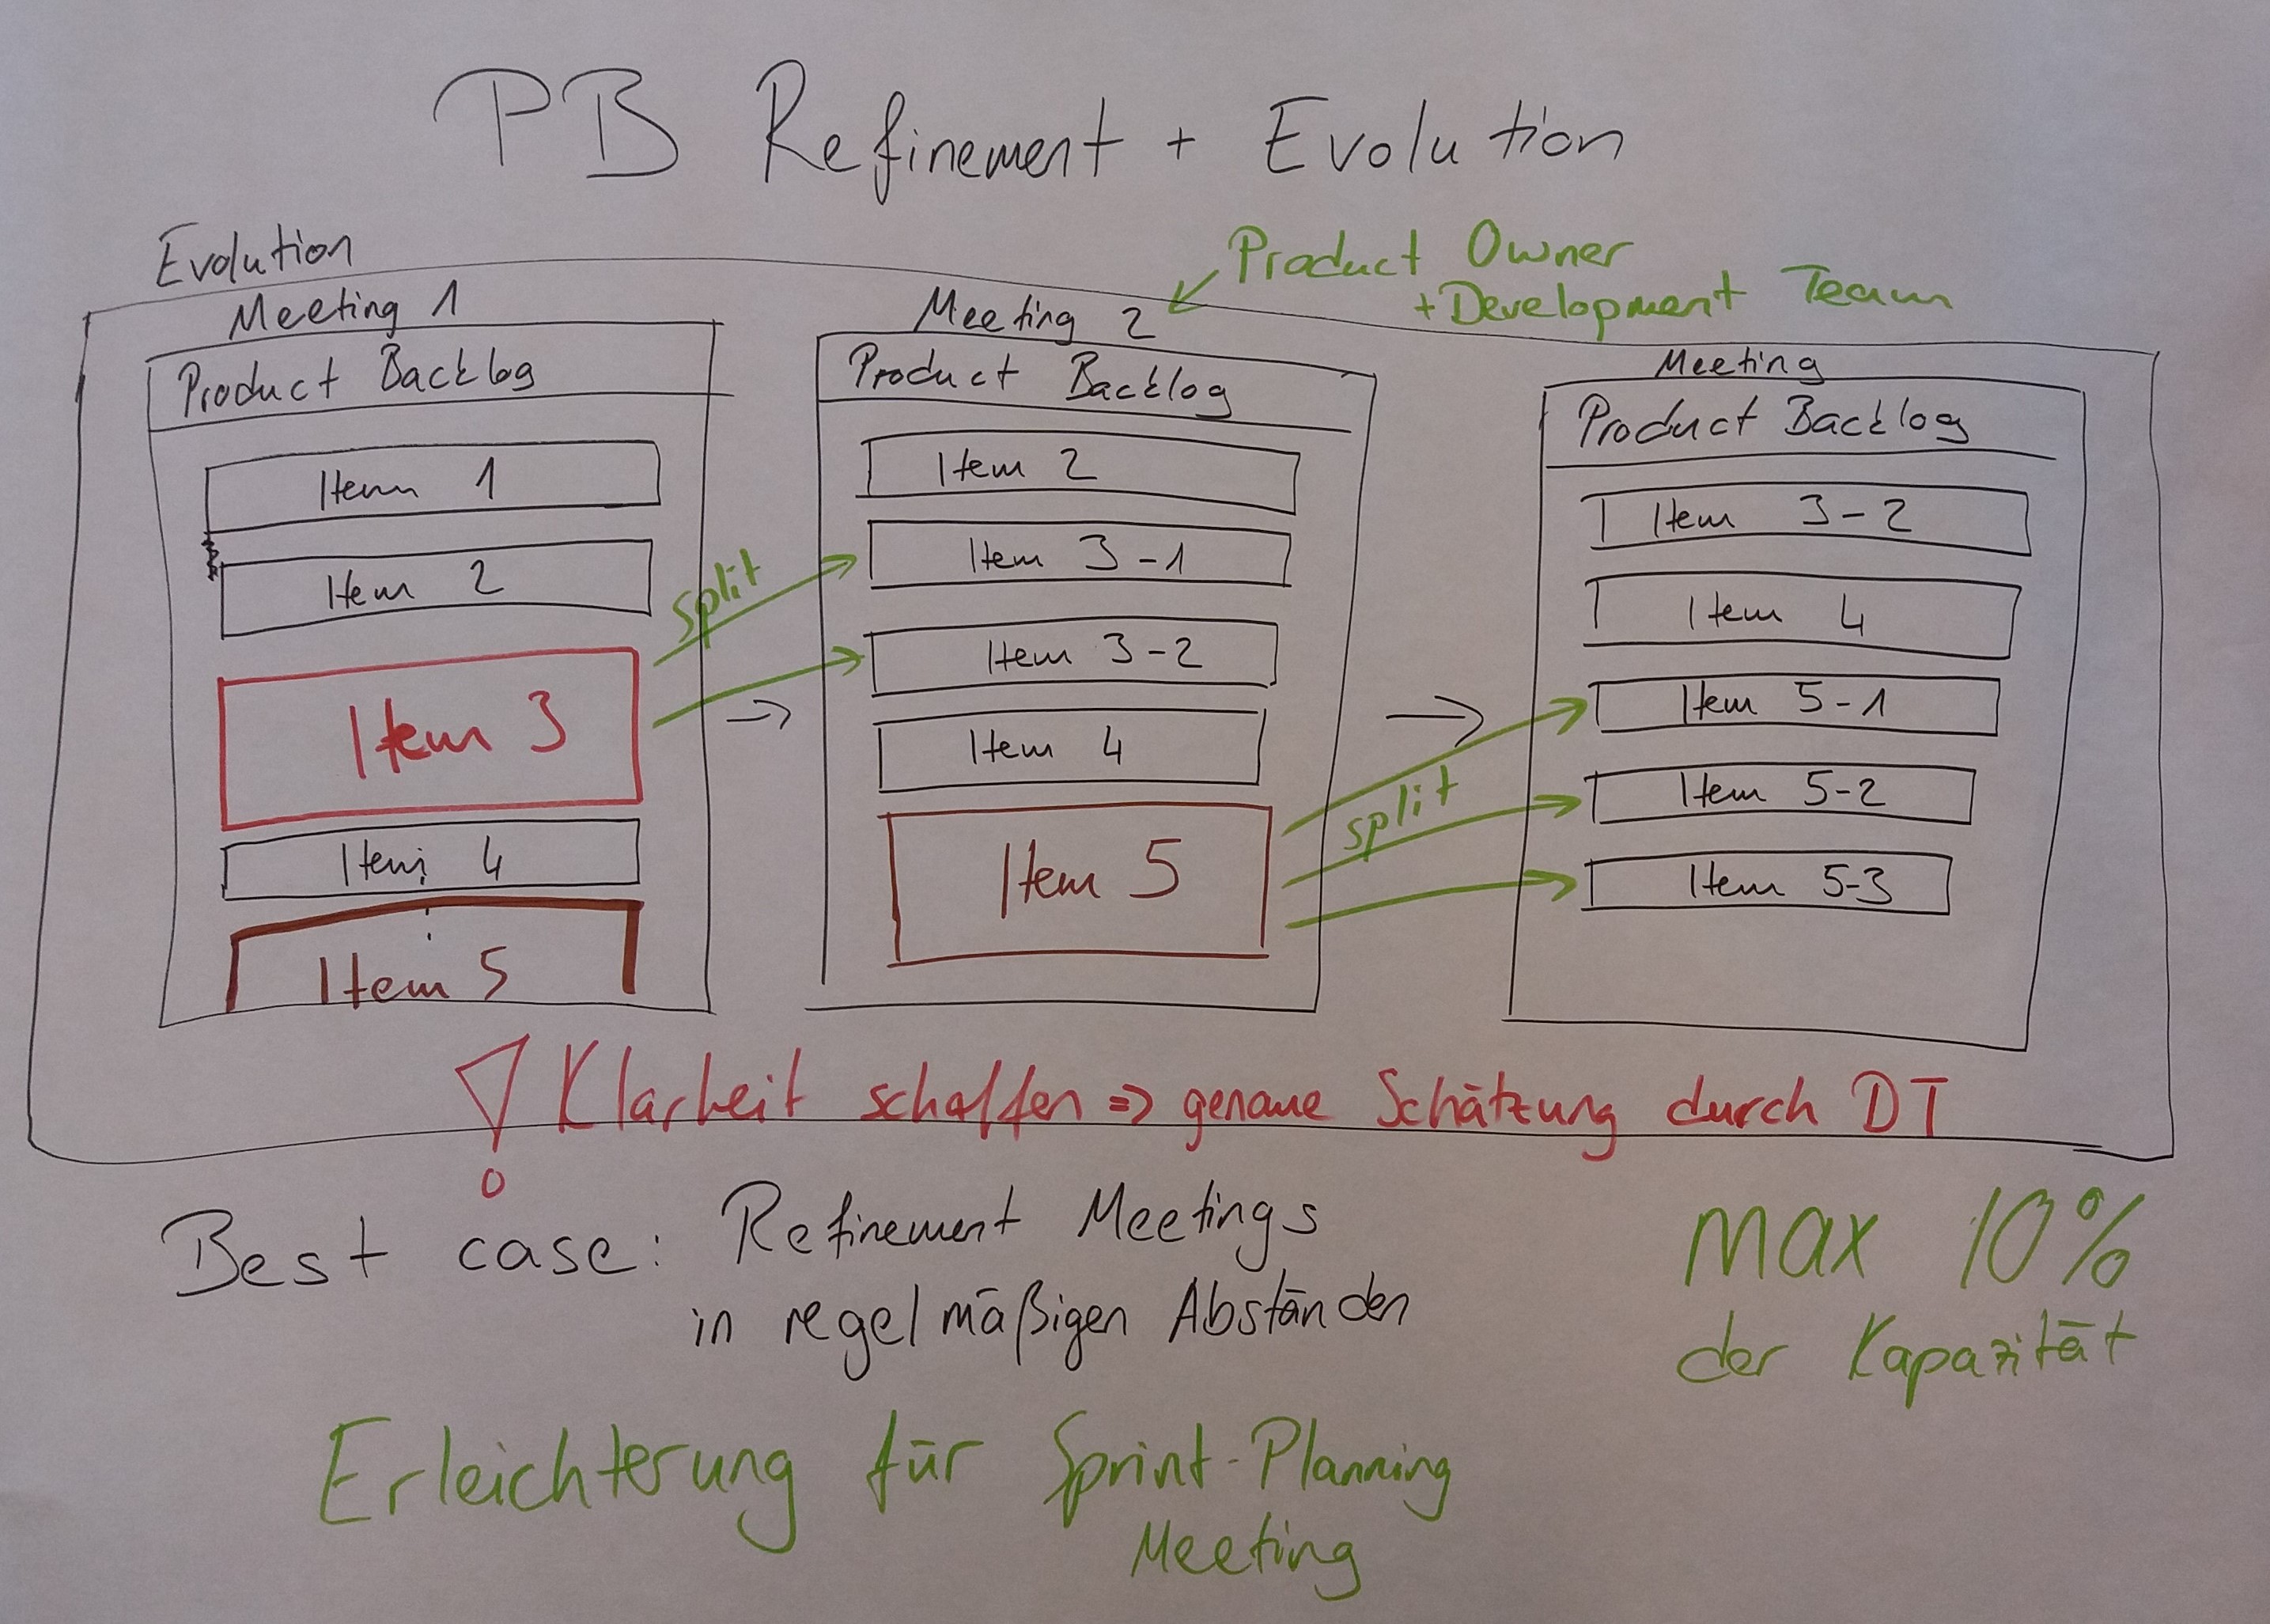 PB Refinement + Evolution
Evolution
Product Owner
+ Development Team
Meeting 1
Product Backlog
Item 1
Item 2
Item 3
Item 4
Item 5
split
Meeting 2
Product Backlog
Item 2
Item 3-1
Item 3-2
Item 4
Item 5
split
Meeting
Product Backlog
Item 3-2
Item 4
Item 5-1
Item 5-2
Item 5-3
! Klarheit schaffen => genaue Schätzung durch DT
Best case: Refinement Meetings
in regelmäßigen Abständen
max 10%
der Kapazität
Erleichterung für Sprint-Planning
Meeting